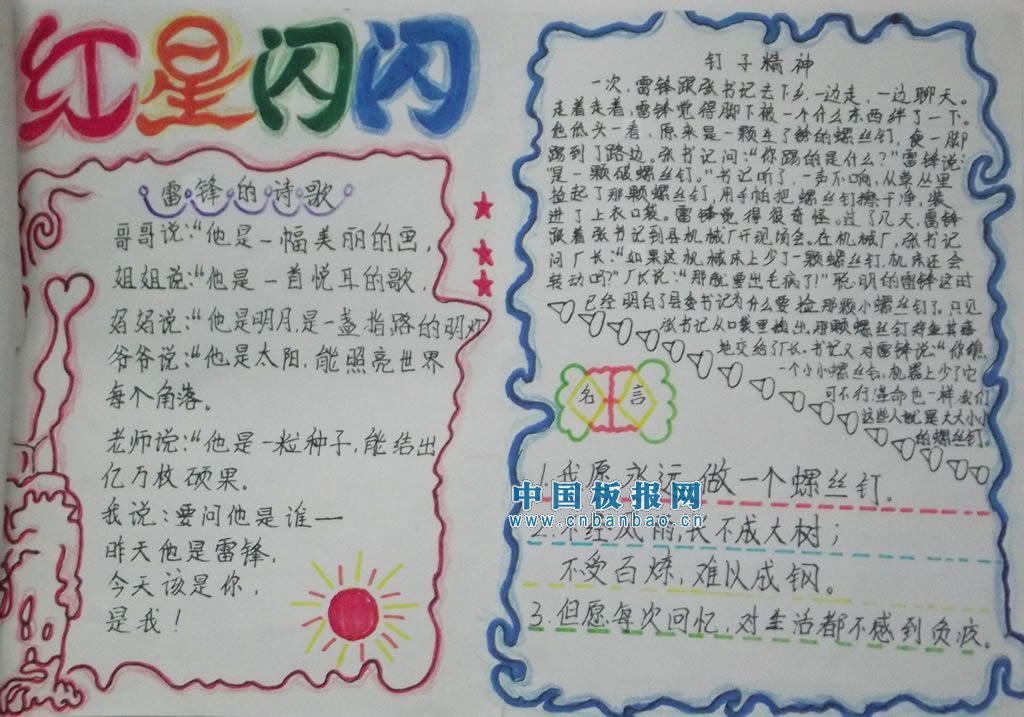 红星闪闪
雷锋的诗歌
哥哥说:“他是一幅美丽的画,
姐姐说:“他是一首悦耳的歌,
妈妈说:“他是明月,是一盏指路的明灯
爷爷说:“他是太阳,能照亮世界
每个角落。
老师说:“他是一粒种子,能结出
亿万枚硕果。
我说:要问他是谁—
昨天他是雷锋,
今天该是你,
是我!
钉子精神
一次,雷锋跟张书记去下乡,一边走,一边聊天。
走着走着,雷锋觉得脚下被一个什么东西绊了一下。
他低头一看,原来是一颗生了锈的螺丝钉,便一脚
踢到了路边。张书记问:“你踢的是什么?”雷锋说:
“是一颗破螺丝钉。”书记听了,一声不响,从草丛里
捡起了那颗螺丝钉,用手帕把螺丝钉擦干净,装
进了上衣口袋。雷锋觉得很奇怪。过了几天,雷锋
跟着张书记到县机械厂开现场会。在机械厂,张书记
问厂长:“如果这机械床上少了一颗螺丝钉,机床还会
转动吗?”厂长说:“那就要出毛病了!”聪明的雷锋这时
已经明白了县委书记为什么要捡那颗小螺丝钉了。只见
张书记从口袋里抽出,那颗螺丝钉
地交给了厂长。书记又对雷锋说:“你瞧,
一个小小螺丝钉,机器上少了它
可不行,革命也一样,我们
这些人就是大大小小
的螺丝钉。
名言
1.我愿永远做一个螺丝钉。
中国板报网
www.cnbanbao.cn
2.不经风雨,长不成大树;
不受百炼,难以成钢。
3.但愿每次回忆,对生活都不感到负疚。